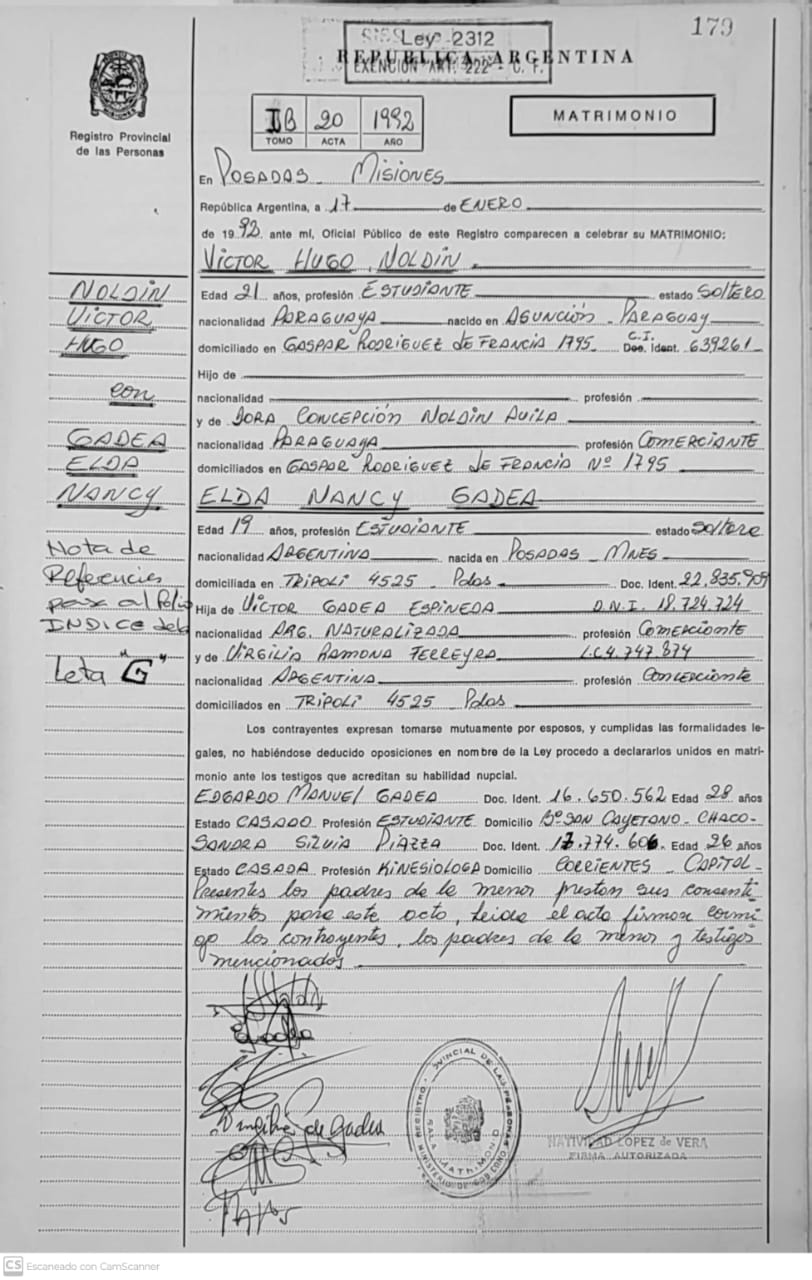 179
Ley 2312
REPUBLICA ARGENTINA
EXENCION ART. 222 - C. F.
Registro Provincial
de las Personas
IB 20 1992
TOMO ACTA AÑO
MATRIMONIO
En POSADAS - MISIONES
República Argentina, a 17 de ENERO
de 1992 ante mí, Oficial Público de este Registro comparecen a celebrar su MATRIMONIO:
VICTOR HUGO NOLDIN
NOLDIN
VICTOR
HUGO
con
GADEA
ELDA
NANCY
Nota de
Referencias
pasa al folio
INDICE de la
Leta "G"
Edad 21 años, profesión ESTUDIANTE estado SOLTERO
nacionalidad PARAGUAYA nacido en ASUNCIÓN - PARAGUAY
domiciliado en GASPAR RODRIGUEZ de FRANCIA 1795 C.I. Doc. Ident. 639261
Hijo de
nacionalidad profesión
y de DORA CONCEPCIÓN NOLDIN AVILA
nacionalidad PARAGUAYA profesión COMERCIANTE
domiciliados en GASPAR RODRIGUEZ de FRANCIA Nº 1795
ELDA NANCY GADEA
Edad 19 años, profesión ESTUDIANTE estado Soltera
nacionalidad ARGENTINA nacida en POSADAS MNES
domiciliada en TRIPOLI 4525 - Pdas Doc. Ident. 22.835.909
Hija de VICTOR GADEA ESPINEDA D.N.I. 18.724.724
nacionalidad ARG. NATURALIZADA profesión Comerciante
y de VIRGILIA RAMONA FERREYRA L.C 4.747.874
nacionalidad ARGENTINA profesión Comerciante
domiciliados en TRIPOLI 4525 Pdas
Los contrayentes expresan tomarse mutuamente por esposos, y cumplidas las formalidades le-
gales, no habiéndose deducido oposiciones en nombre de la Ley procedo a declararlos unidos en matri-
monio ante los testigos que acreditan su habilidad nupcial.
EDGARDO MANUEL GADEA Doc. Ident. 16.650.562 Edad 28 años
Estado CASADO Profesión ESTUDIANTE Domicilio Bº SAN CAYETANO - CHACO-
SANDRA SILVIA PIAZZA Doc. Ident. 17.774.606 Edad 26 años
Estado CASADA Profesión KINESIOLOGA Domicilio CORRIENTES - CAPITAL-
Presentes los padres de la menor prestan sus consenti
mientos para este acto, leida el acta firman conmi
go los contrayentes, los padres de la menor y testigos
mencionados
Virgilia de Gadea
REGISTRO PROVINCIAL DE LAS PERSONAS
SALA MATRIMONIO
MINISTERIO DE GOBIERNO
NATIVIDAD LOPEZ de VERA
FIRMA AUTORIZADA
CS Escaneado con CamScanner